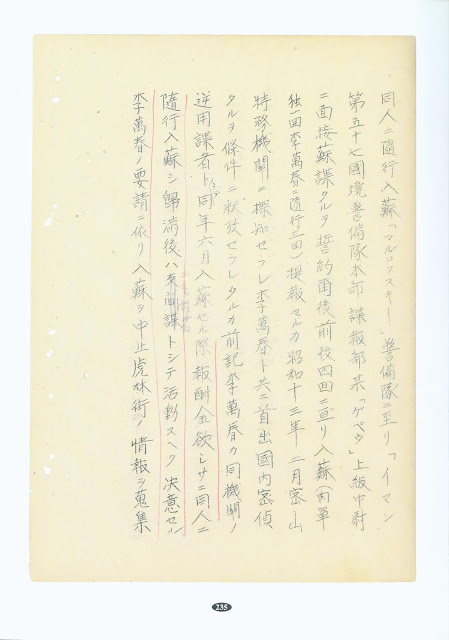 同人ニ隨行入蘇「マルコフスキー」警備隊ニ至リ「イマン
第五十七國境警備隊本部諜報部某「ゲペウ」上級中尉
ニ面接蘇諜タルヲ誓約爾後前後四回ニ亘リ入蘇(内單
独一回李萬春ニ隨行三回)提報セルカ昭和十三年二月密山
特務機關ニ探知セラレ李萬春ト共ニ首出國内密偵
タルヲ條件ニ釈放セラレタルカ前記李萬春カ同機關ノ
逆用諜者トシテ同年六月入蘇セル際報酬金欲シサニ同人ニ
隨行入蘇シ歸滿後ハ諜トシテ活動スヘク決意セル
李萬春ノ要請ニ依リ入蘇ヲ中止虎林街ノ情報ヲ蒐集
235